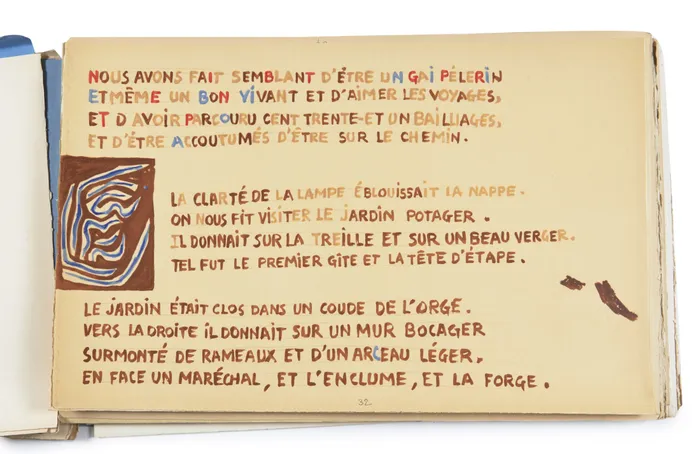 NOUS AVONS FAIT SEMBLANT D'ÊTRE UN GAI PÈLERIN
ET MÊME UN BON VIVANT ET D'AIMER LES VOYAGES,
ET D AVOIR PARCOURU CENT TRENTE-ET UN BAILLIAGES,
ET D'ÊTRE ACCOUTUMÉS D'ÊTRE SUR LE CHEMIN.
LA CLARTÉ DE LA LAMPE ÉBLOUISSAIT LA NAPPE.
ON NOUS FIT VISITER LE JARDIN POTAGER.
IL DONNAIT SUR LA TREILLE ET SUR UN BEAU VERGER.
TEL FUT LE PREMIER GÎTE ET LA TÊTE D'ÉTAPE.
LE JARDIN ÉTAIT CLOS DANS UN COUDE DE L'ORGE.
VERS LA DROITE IL DONNAIT SUR UN MUR BOCAGER
SURMONTÉ DE RAMEAUX ET D'UN ARCEAU LÉGER,
EN FACE UN MARÉCHAL, ET L'ENCLUME, ET LA FORGE.
32